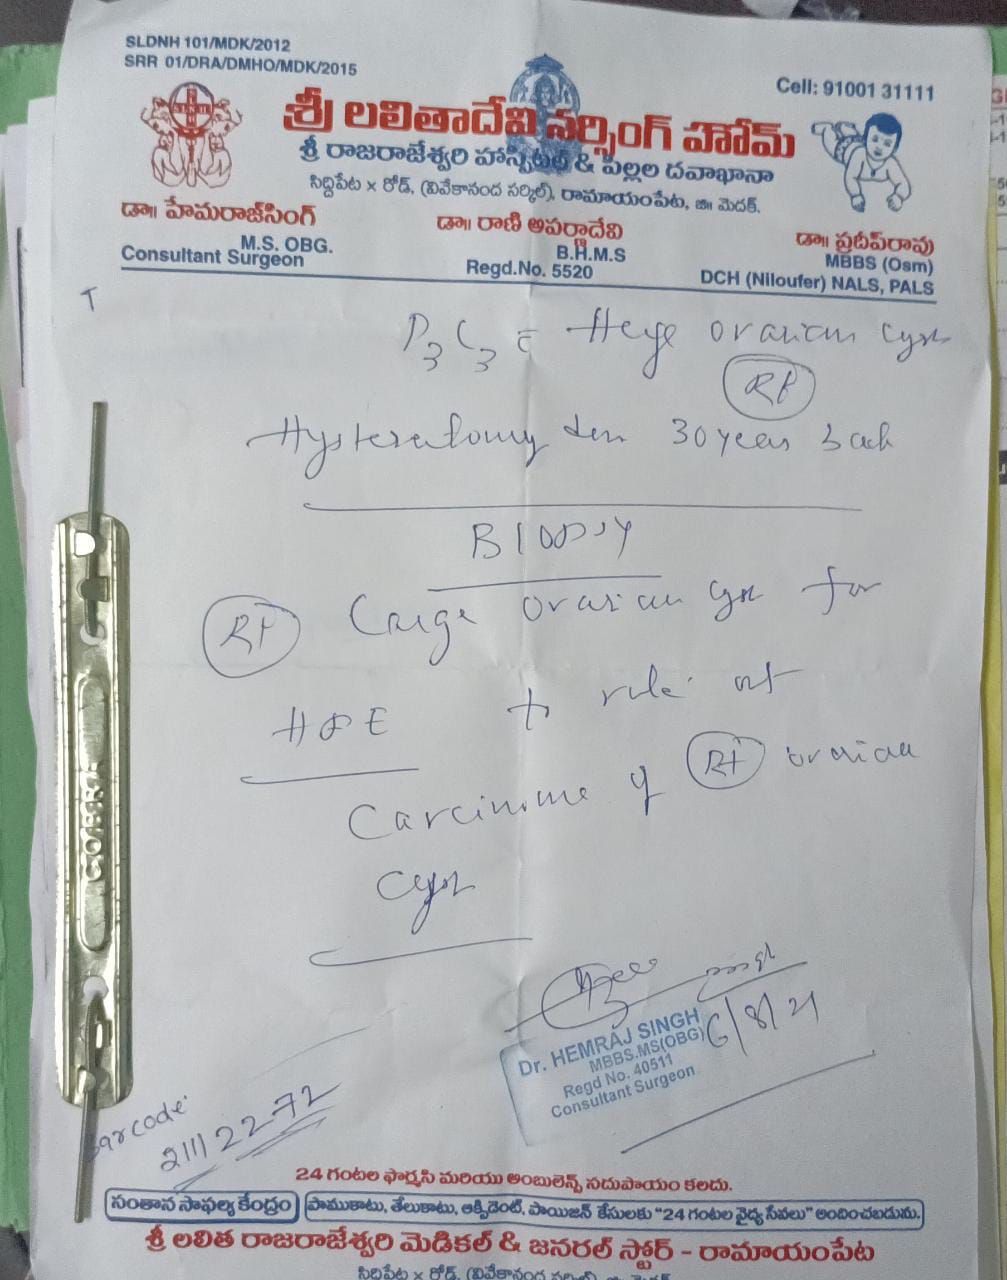 SLDNH 101/MDK/2012
SRR 01/DRA/DMHO/MDK/2015
Cell: 91001 31111
శ్రీ లలితాదేవి నర్సింగ్ హోమ్
శ్రీ రాజరాజేశ్వరి హాస్పిటల్ & పిల్లల దవాఖానా
సిద్దిపేట x రోడ్, (వివేకానంద సర్కిల్), రామాయంపేట, జిః మెదక్.
డాః హేమరాజ్‌సింగ్
M.S. OBG.
Consultant Surgeon
డాః రాణి అపర్ణాదేవి
B.H.M.S
Regd.No. 5520
డాః ప్రదీప్‌రావు
MBBS (Osm)
DCH (Niloufer) NALS, PALS
T
P3 C3 c̄ Huge ovarian cyst
Rt
Hysterectomy 30 years back
Biopsy
Rt Large ovarian cyst for
HPE to rule out
Carcinoma of Rt ovarian
cyst
6/8/21
Dr. HEMRAJ SINGH
MBBS.MS(OBG)
Regd No. 40511
Consultant Surgeon
Barcode:
21112272
24 గంటల ఫార్మసి మరియు అంబులెన్స్ సదుపాయం కలదు.
సంతాన సాఫల్య కేంద్రం పాముకాటు, తేలుకాటు, ఆక్సిడెంట్, పాయిజన్ కేసులకు "24 గంటల వైద్య సేవలు" అందించబడును.
శ్రీ లలిత రాజరాజేశ్వరి మెడికల్ & జనరల్ స్టోర్ - రామాయంపేట
సిద్దిపేట x రోడ్, (వివేకానంద సర్కిల్) జిః మెదక్